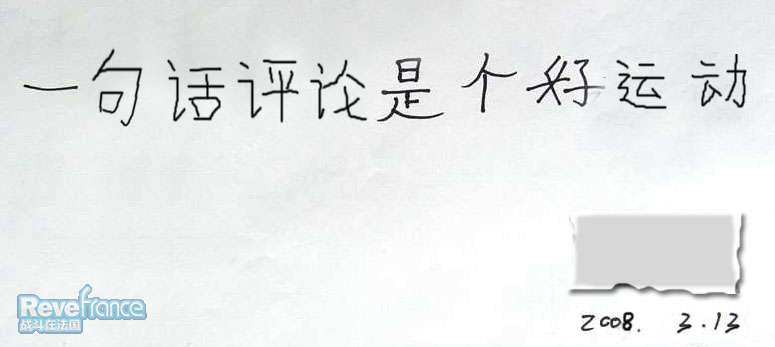 一句话评论是个好运动
Revefrance
战斗在法国
2008. 3.13